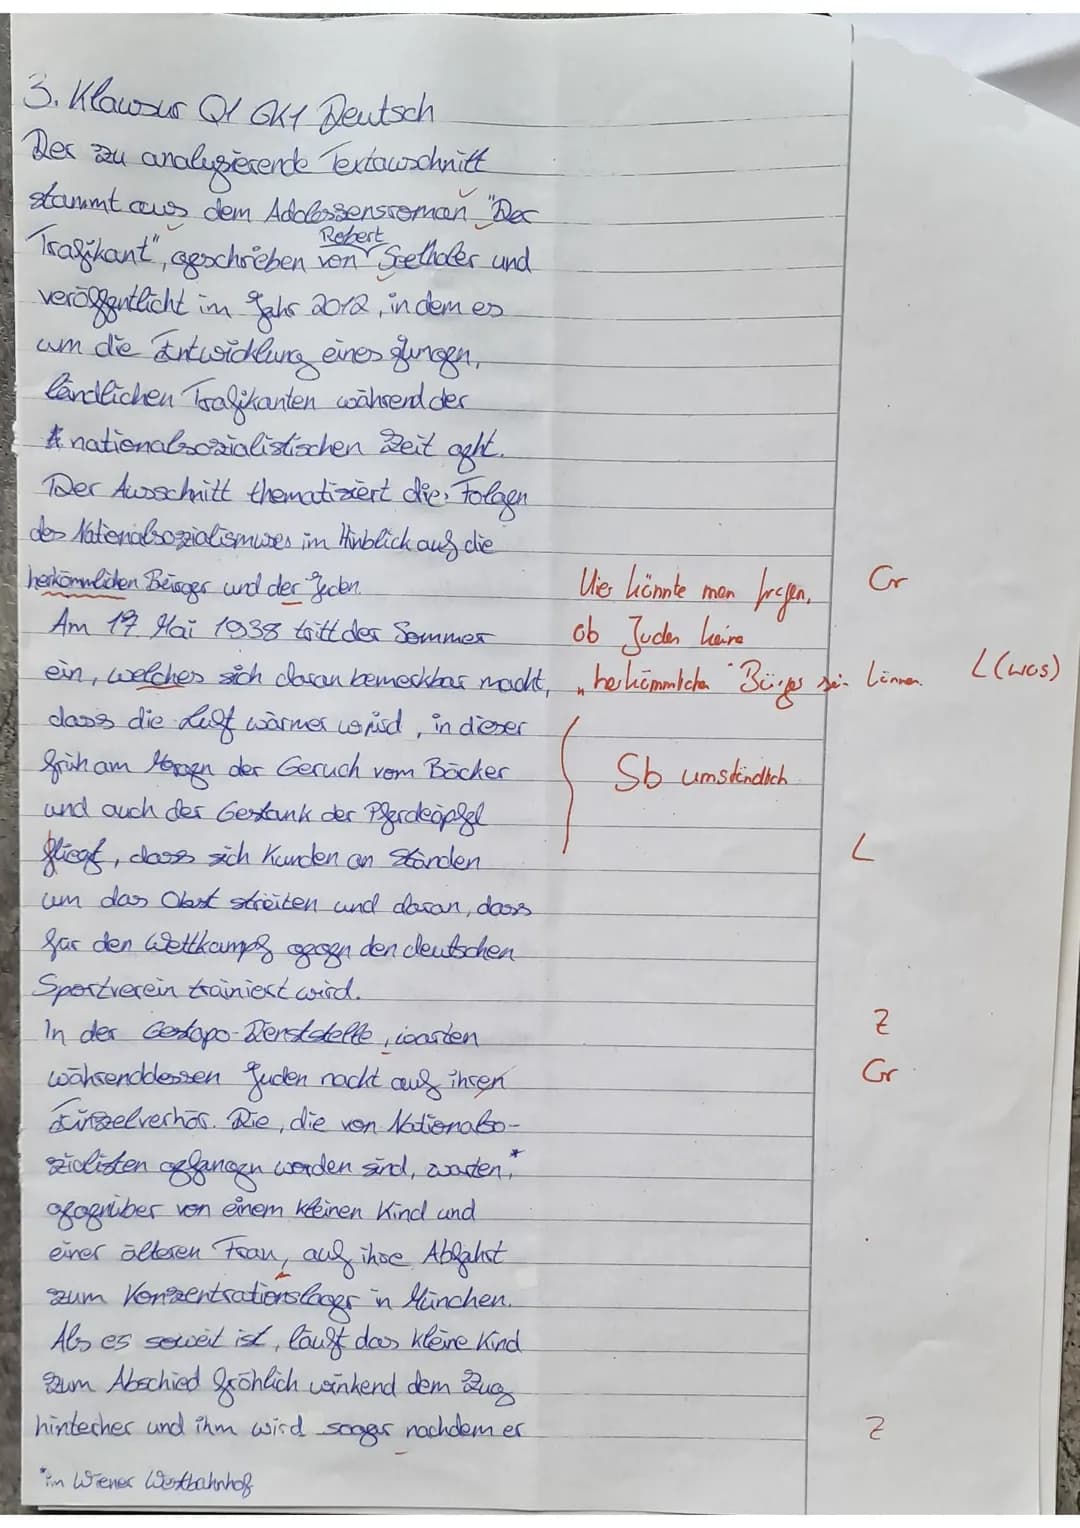 3. Klausur Q1 GK1 Deutsch
Der zu analysierende Textauschnitt
stammt aus dem Adoleszensroman "Der
Robert
Trafikant", geschrieben von Seethaler und
veröffentlicht im Jahr 2012, in dem es
um die Entwicklung eines jungen,
ländlichen Trafikanten während der
nationalsozialistischen Zeit geht.
Der Ausschnitt thematisiert die Folgen
des Nationalsozialismuses im Hinblick auf die
herkömmlichen Bürger und der Juden. Hier könnte man fragen, Gr
Am 17 Mai 1938 tritt der Sommer ob Juden keine
ein, welches sich daran bemerkbar macht, "herkömmlichen" Bürger sein können. L (was)
dass die Luft wärmer wird, in dieser
früh am Morgen der Geruch vom Bäcker Sb umständlich
und auch der Gestank der Pferdeäpfel
fliegt, dass sich Kunden an Ständen L
um das Obst streiten und daran, dass
für den Wettkampf gegen den deutschen
Sportverein trainiert wird.
In der Gestapo-Dienststelle, warten Z
währenddessen Juden nackt auf ihren Gr
Einzelverhör. Die, die von Nationalso-
zialisten gefangen worden sind, warten,*
gegnüber von einem kleinen Kind und
einer älteren Frau, auf ihre Abfahrt
zum Konzentrationslager in München.
Als es soweit ist, läuft das kleine Kind
zum Abschied fröhlich winkend dem Zug
hinterher und ihm wird sogar nachdem er Z
*im Wiener Westbahnhof